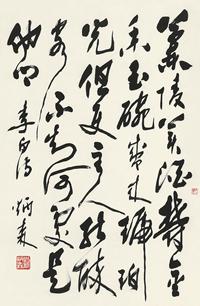 兰陵美酒郁金
香玉碗盛来琥珀
光但使主人能醉
客不知何处是
他乡 李白诗 炳森